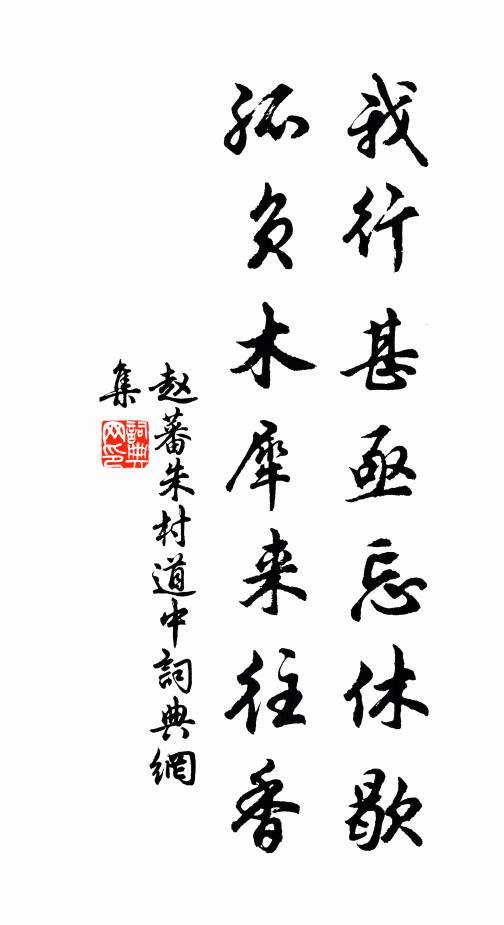 我行甚亟忘休歇
孤负木犀来往香
赵蕃朱村道中詞典網
集
詞典
网印